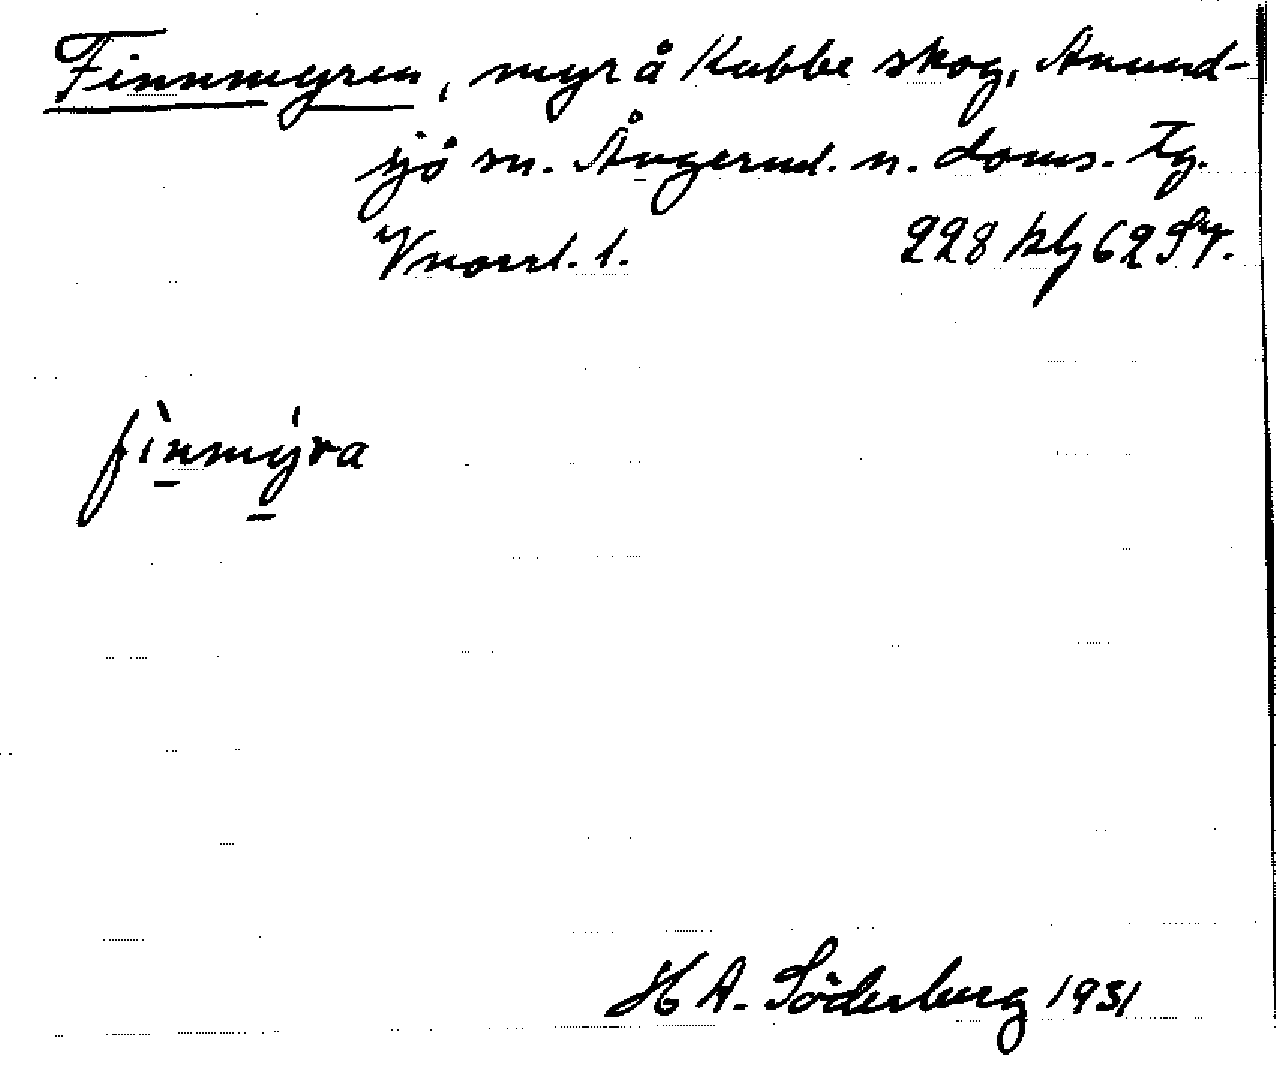 Finnmyren, myr å Kubbe skog, Anund-
sjö sn. Ångerml. n. doms. Tg.
Vnorrl. l. 228 klg 62 SV.
fìnmýra
H A. Söderberg 1931